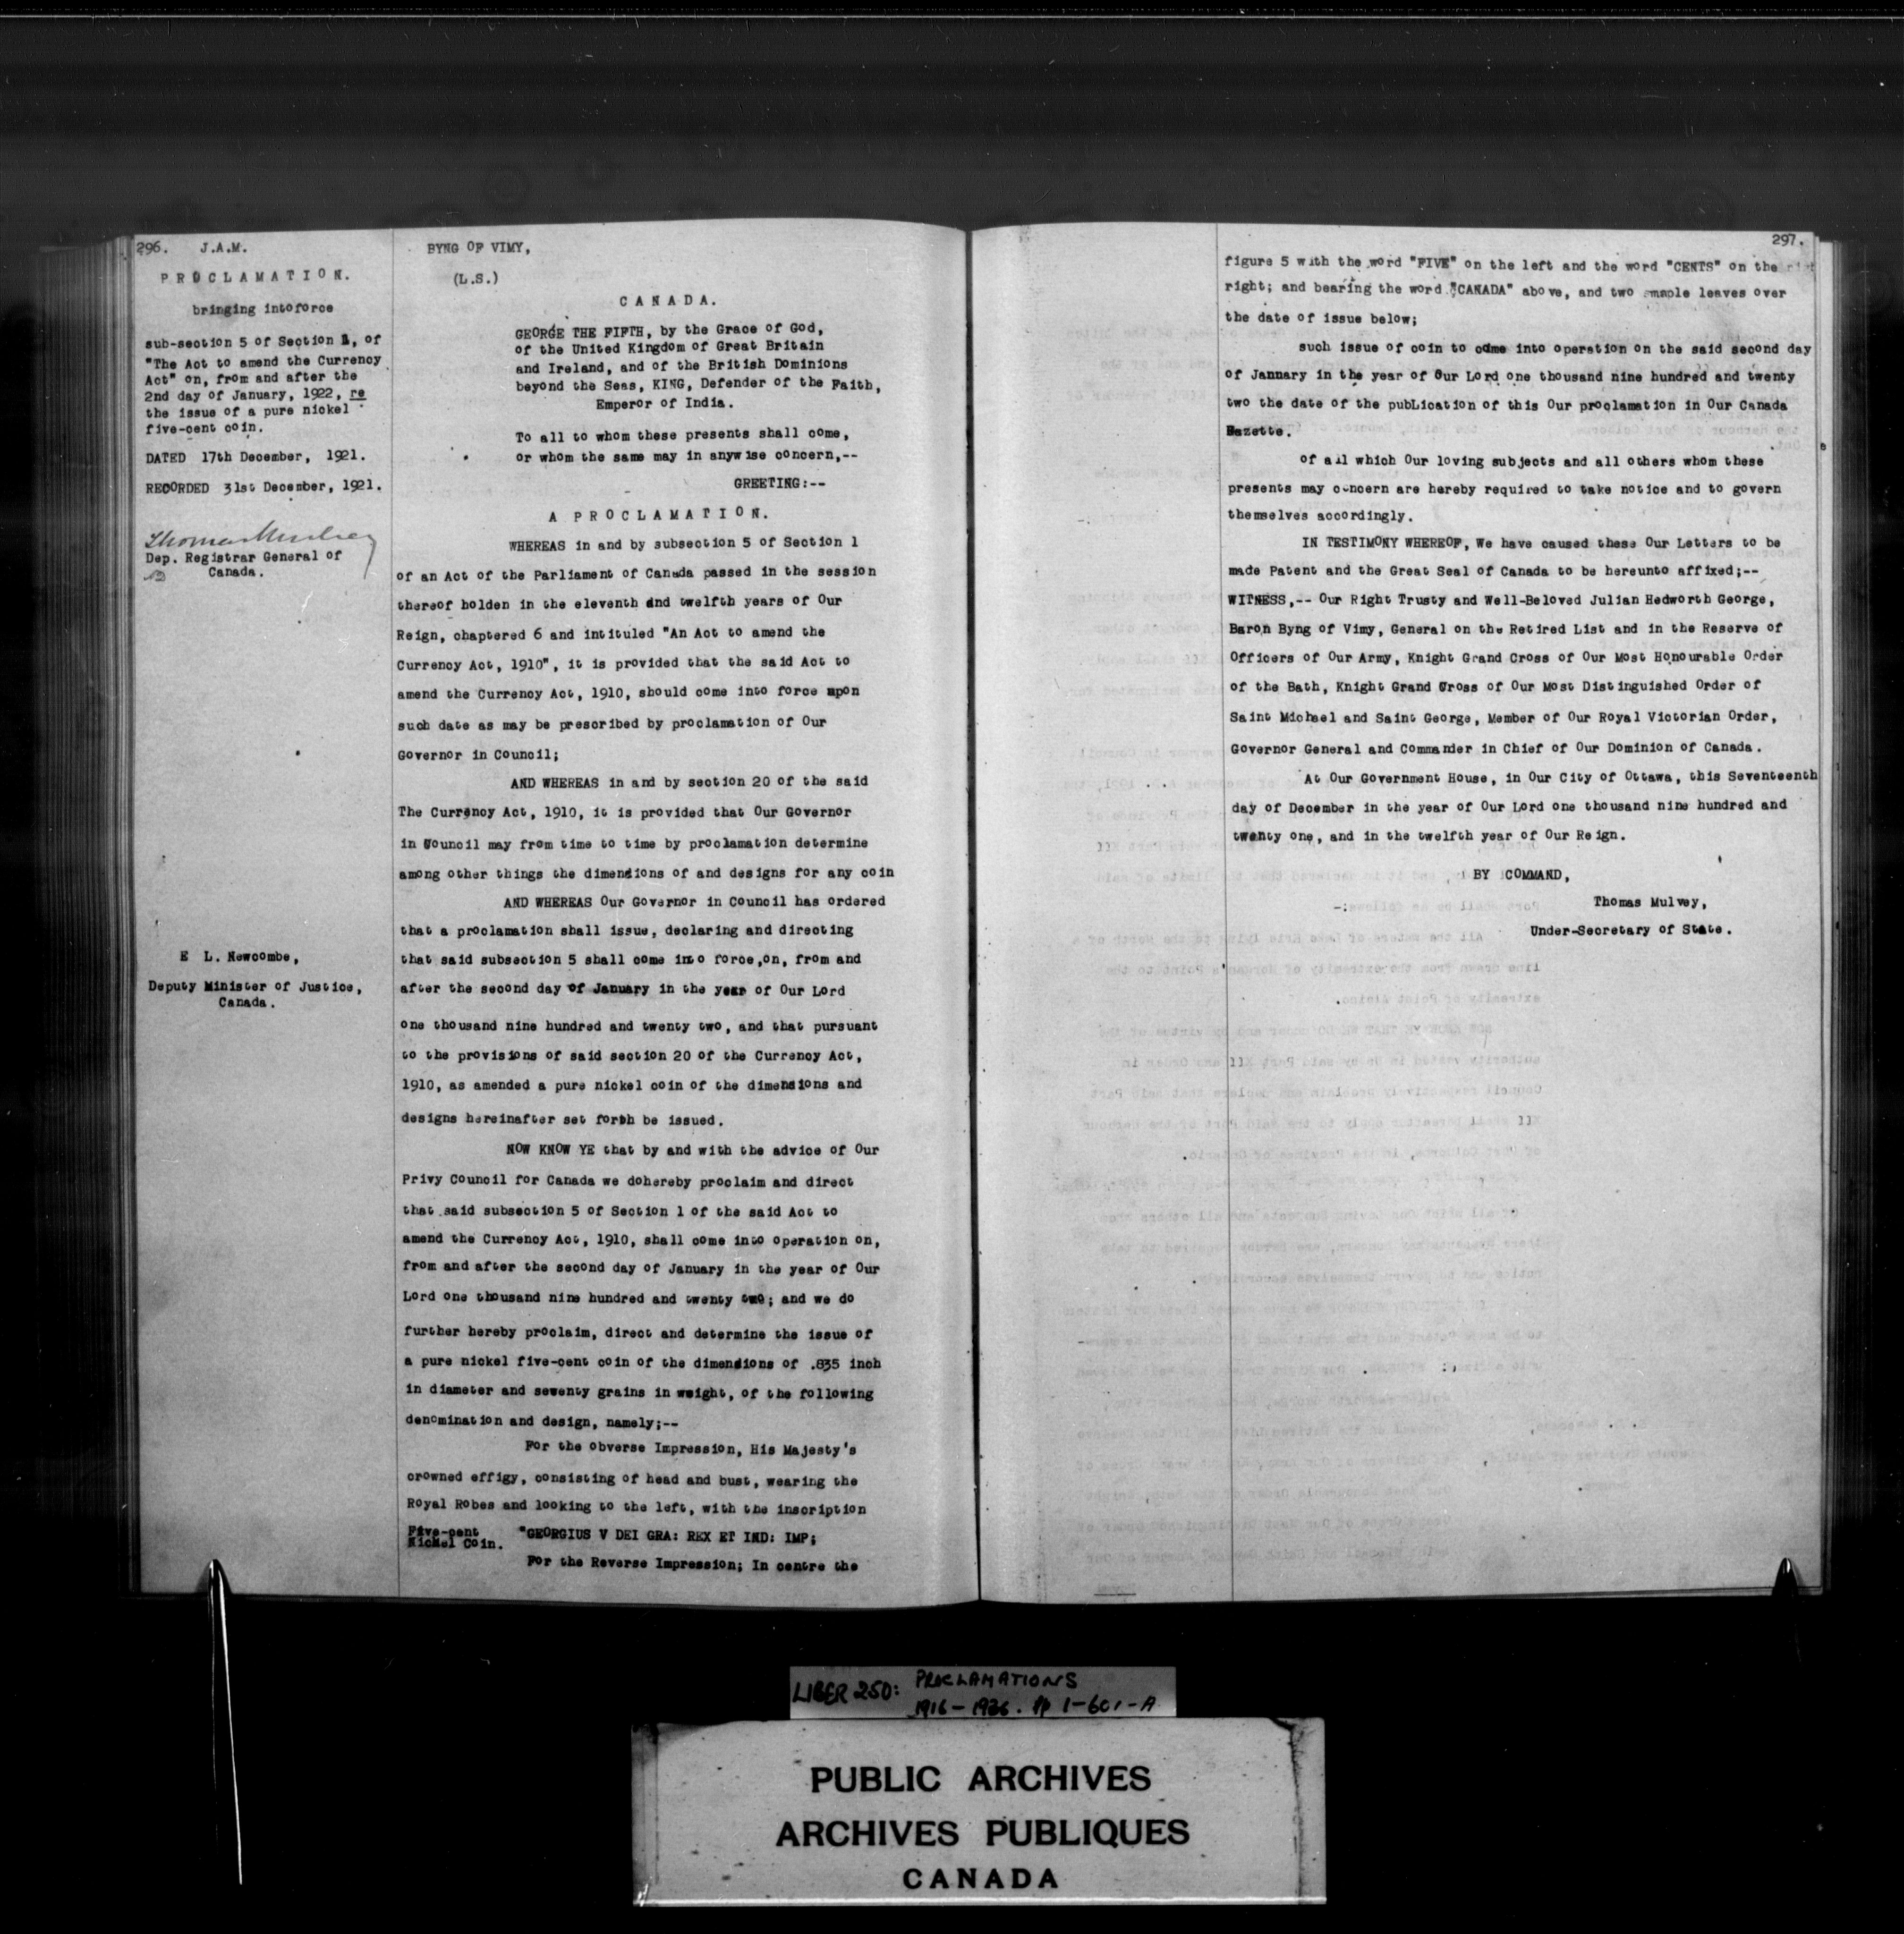 296. J.A.M.
PROCLAMATION.
bringing intoforce
sub-section 5 of Section 1, of
"The Act to amend the Currency
Act" on, from and after the
2nd day of January, 1922, re
the issue of a pure nickel
five-cent coin.
DATED 17th December, 1921.
RECORDED 31st December, 1921.
Thomas Mulvey
Dep. Registrar General of
Canada.
E L. Newcombe,
Deputy Minister of Justice,
Canada.
BYNG OF VIMY,
(L.S.)
CANADA.
GEORGE THE FIFTH, by the Grace of God,
of the United Kingdom of Great Britain
and Ireland, and of the British Dominions
beyond the Seas, KING, Defender of the Faith,
Emperor of India.
To all to whom these presents shall come,
or whom the same may in anywise concern,--
GREETING:--
A PROCLAMATION.
WHEREAS in and by subsection 5 of Section 1
of an Act of the Parliament of Canada passed in the session
thereof holden in the eleventh and twelfth years of Our
Reign, chaptered 6 and intituled "An Act to amend the
Currency Act, 1910", it is provided that the said Act to
amend the Currency Act, 1910, should come into force upon
such date as may be prescribed by proclamation of Our
Governor in Council;
AND WHEREAS in and by section 20 of the said
The Currency Act, 1910, it is provided that Our Governor
in Council may from time to time by proclamation determine
among other things the dimensions of and designs for any coin
AND WHEREAS Our Governor in Council has ordered
that a proclamation shall issue, declaring and directing
that said subsection 5 shall come into force,on, from and
after the second day of January in the year of Our Lord
one thousand nine hundred and twenty two, and that pursuant
to the provisions of said section 20 of the Currency Act,
1910, as amended a pure nickel coin of the dimensions and
designs hereinafter set forth be issued.
NOW KNOW YE that by and with the advice of Our
Privy Council for Canada we dohereby proclaim and direct
that said subsection 5 of Section 1 of the said Act to
amend the Currency Act, 1910, shall come into operation on,
from and after the second day of January in the year of Our
Lord one thousand nine hundred and twenty two; and we do
further hereby proclaim, direct and determine the issue of
a pure nickel five-cent coin of the dimensions of .835 inch
in diameter and seventy grains in weight, of the following
denomination and design, namely;--
For the Obverse Impression, His Majesty's
crowned effigy, consisting of head and bust, wearing the
Royal Robes and looking to the left, with the inscription
Five-cent
Nickel Coin.
"GEORGIUS V DEI GRA: REX ET IND: IMP;
For the Reverse Impression; In centre the
297.
figure 5 with the word "FIVE" on the left and the word "CENTS" on the
right; and bearing the word "CANADA" above, and two maple leaves over
the date of issue below;
such issue of coin to come into operation on the said second day
of Jannary in the year of Our Lord one thousand nine hundred and twenty
two the date of the publication of this Our proclamation in Our Canada
Gazette.
Of all which Our loving subjects and all others whom these
presents may concern are hereby required to take notice and to govern
themselves accordingly.
IN TESTIMONY WHEREOF, We have caused these Our Letters to be
made Patent and the Great Seal of Canada to be hereunto affixed;--
WITNESS,-- Our Right Trusty and Well-Beloved Julian Hedworth George,
Baron Byng of Vimy, General on the Retired List and in the Reserve of
Officers of Our Army, Knight Grand Cross of Our Most Honourable Order
of the Bath, Knight Grand Cross of Our Most Distinguished Order of
Saint Michael and Saint George, Member of Our Royal Victorian Order,
Governor General and Commander in Chief of Our Dominion of Canada.
At Our Government House, in Our City of Ottawa, this Seventeenth
day of December in the year of Our Lord one thousand nine hundred and
twenty one, and in the twelfth year of Our Reign.
BY COMMAND,
Thomas Mulvey,
Under-Secretary of State.
LIBER 250: PROCLAMATIONS
1916-1936. pp 1-601-A
PUBLIC ARCHIVES
ARCHIVES PUBLIQUES
CANADA